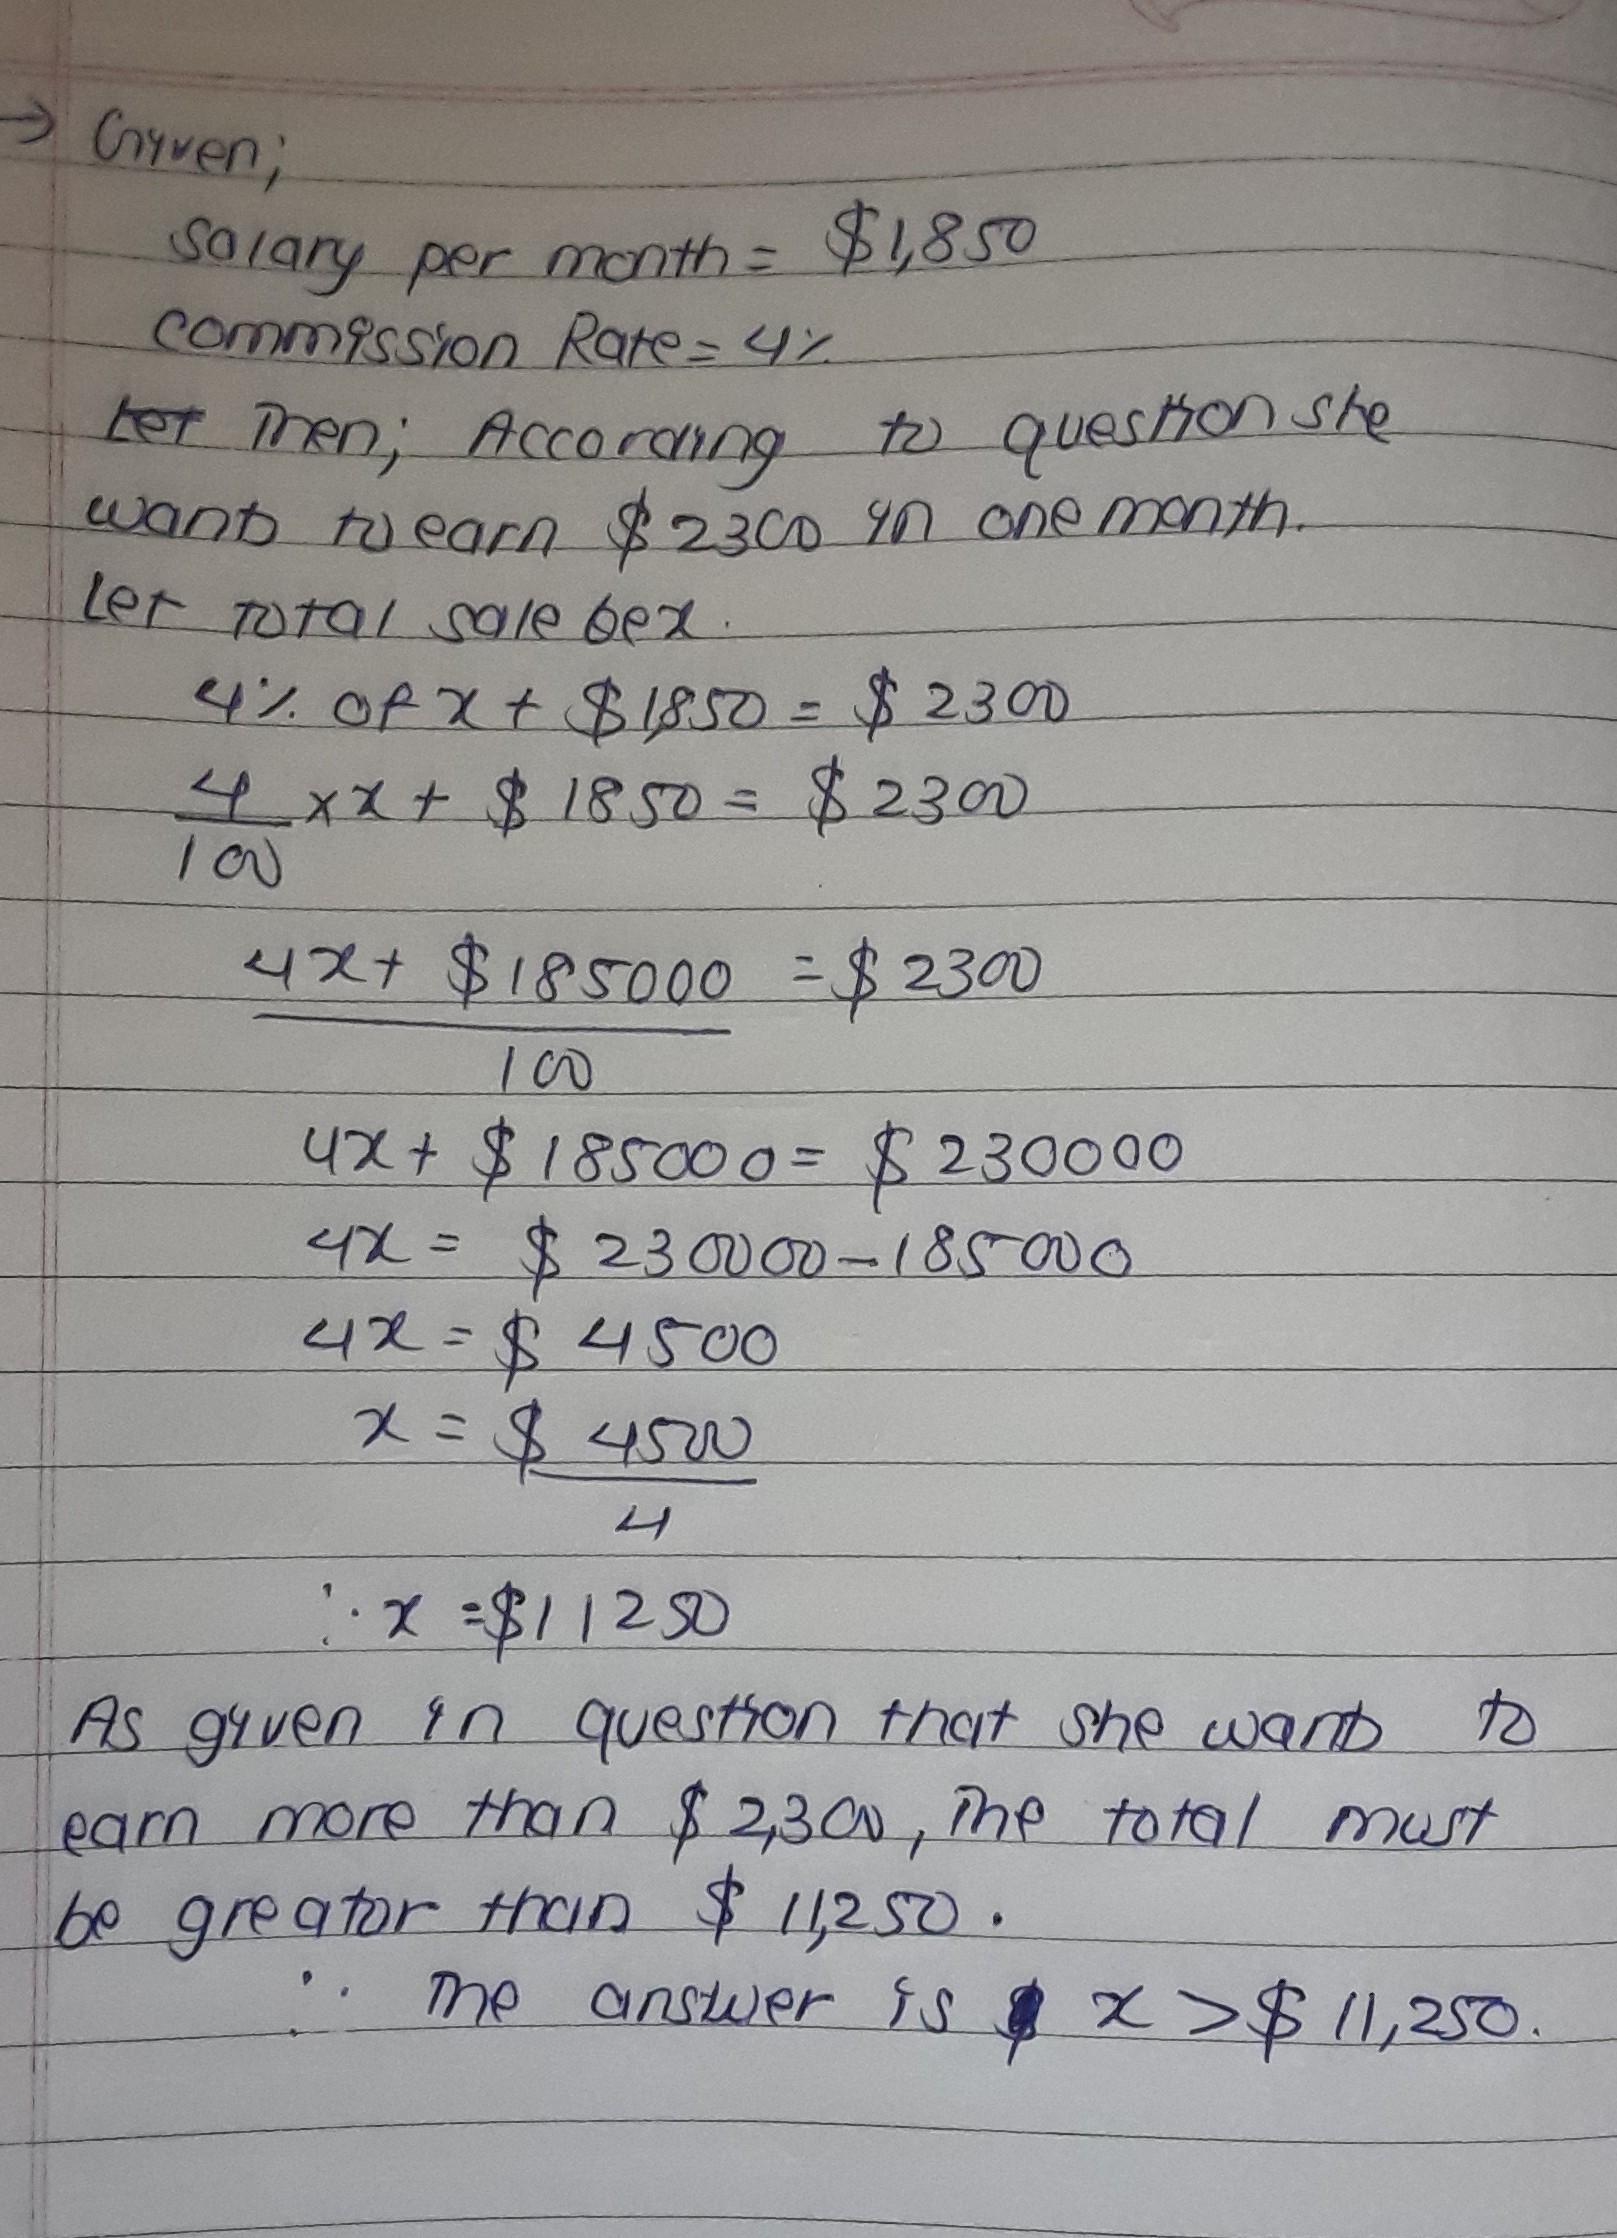 → Given;
Salary per month = $1,850
Commission Rate = 4%
Let Then; According to question she
wants to earn $2300 in one month.
Let total sale be x.
4% of x + $1,850 = $2300
4/100 × x + $1850 = $2300
4x + $185000 / 100 = $2300
4x + $185000 = $230000
4x = $230000 - 185000
4x = $4500
x = $4500/4
∴ x = $11250
As given in question that she wants to
earn more than $2,300, The total must
be greator than $11,250.
∴ The answer is x > $11,250.